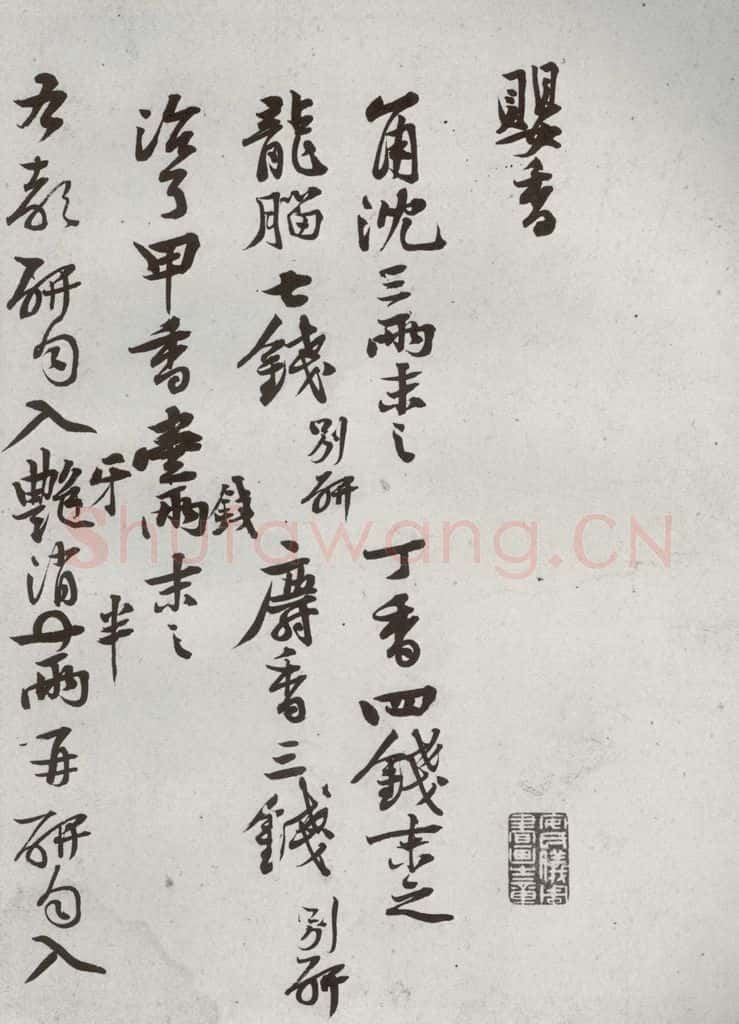 嬰香
角沈三兩末之 丁香四錢末之
龍腦七錢 別研 麝香三錢 別研
治了甲香壹兩錢末之
右都研匀入艷牙消半兩再研匀入
安氏儀周書畫之章
Shufawang.CN